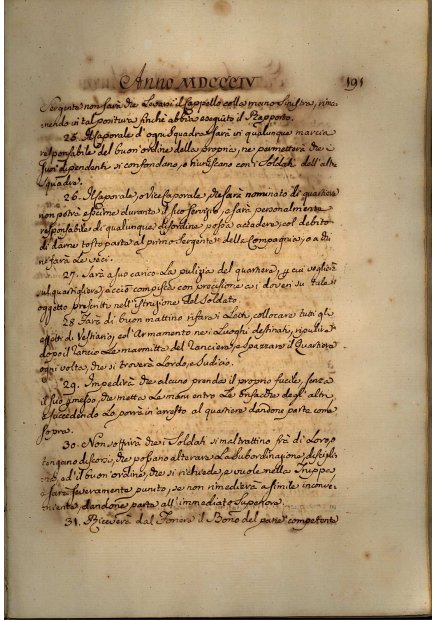 Anno MDCCCIV 191
Sergente non farà che Levarsi il Cappello colla mano Sinistra, rima-
nendo in tal positura finchè abbia eseguito il Rapporto.
25. Il Caporale d'ogni Squadra sarà in qualunque marcia
responsabile del buon'ordine della propria, ne permetterà che i
suoi dipendenti si confondano, o riuniscano con i Soldati dell'altre
squadre.
26. Il Caporale, o Vice Caporale, che sarà nominato di quartiere
non potrà esimersi durante il suo servizio, e sarà personalmente
responsabile di qualunque disordine possa accadere, col debito
di darne tosto parte al primo Sergente della Compagnia, o a chi
ne farà Le veci.
27. Sarà a suo carico La pulizia del quartiere, per cui veglierà
sul quartigliere, acciò compisca con precisione a i doveri su tale
oggetto prescritti nell'istruzione del Soldato.
28. Farà di buon mattino rifare i Letti, collocare tutti gli
effetti di Vestiario, ed Armamento nei Luoghi destinati, ripulire
dopo il rancio Le marmitte del Ranciere, e spazzare il Quartiere
ogni volta, che si troverà Lordo, e Sudicio.
29. Impedirà che alcuno prenda il proprio fucile, senza
il suo permesso, che metta La mano entro La bisacche degl'altri,
e succedendo Lo porrà in arresto al quartiere dandone parte come
sopra.
30. Non soffrirà che i Soldati si maltrattino frà di Loro, o
tengano discorsi, che possano alterare La Subordinazione, discipli-
na, ed il buon'ordine, che si richiede, e vuole nella Truppa
e sarà severamente punito, se non rimedierà a simile inconve-
niente, dandone parte all'immediato Superiore.
31. Riceverà dal Foriere il Bono del pane competente